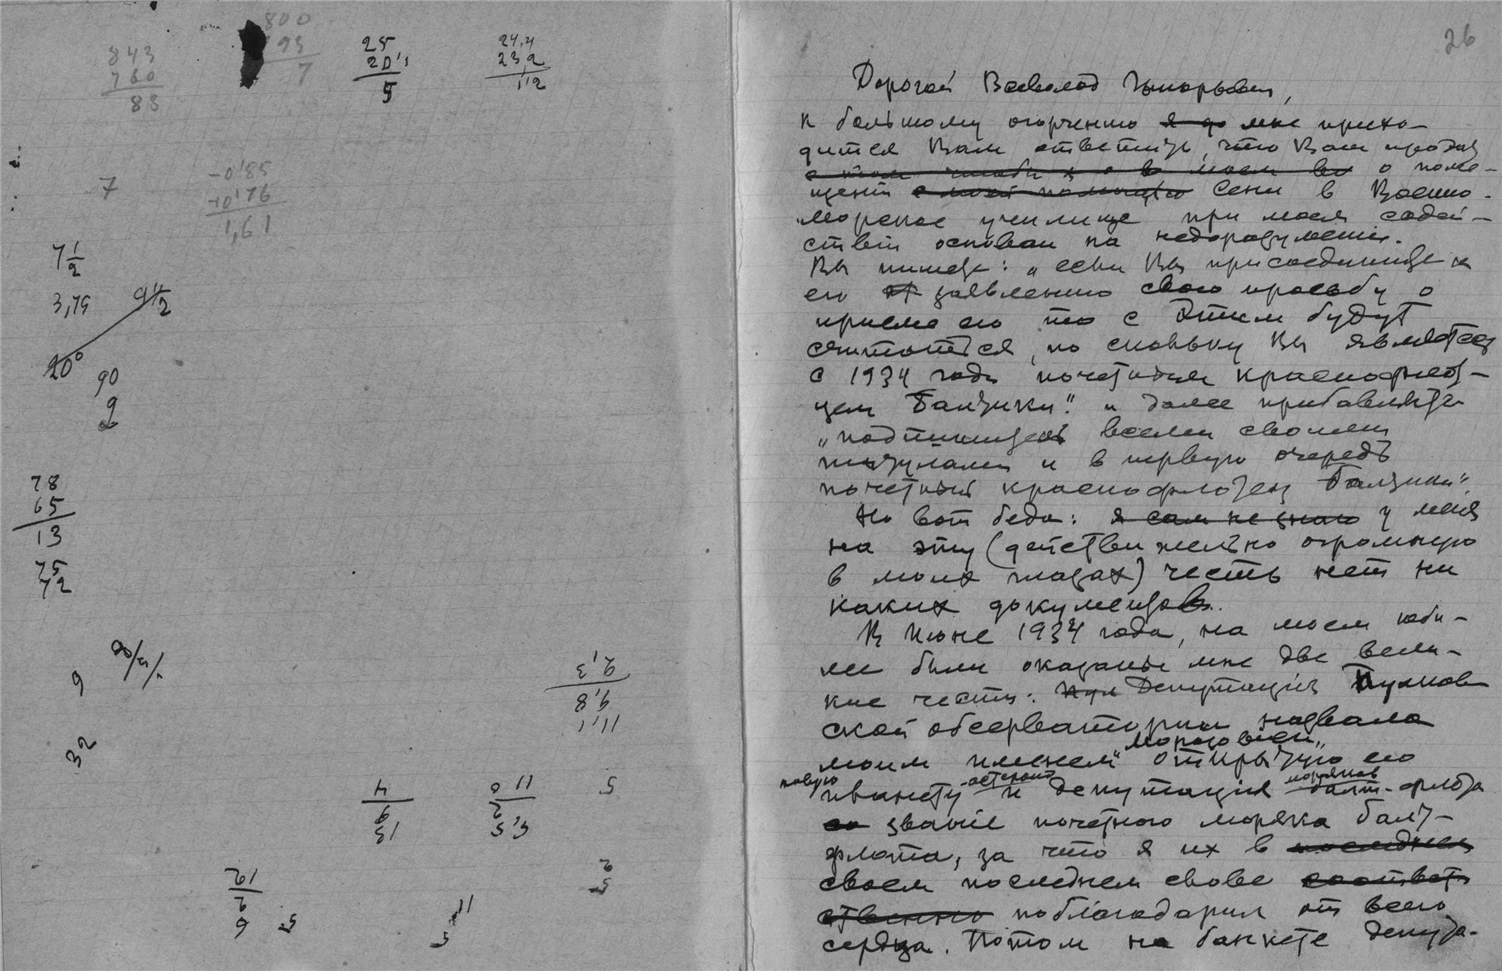 800
95
7
843
760
83
25
20,1
5
24,4
23,2
1,2
7
-0,85
+0,76
1,61
7 1/2
3,75
9 1/2
20°
90
2
78
65
13
75
72
9
32
11,1
9,8
2,3
15
9
4
5,5
2
11 0
5
2
5
6
2
12
5
11
5
26
Дорогой Всеволод
к большому огорчению я до мне прихо-
дится Вам ответить, что Ваш проэкт
о поме-
щении с моей помощью Сени в Военно-
морское училище при моем содей-
ствии основан на недоразумении.
Вы пишете: "если Вы присоедините к
его заявлению свою просьбу о
приеме его то с этим будут
считаться, поскольку Вы являетесь
с 1934 года почетным краснофлот-
цем Балтики". и далее прибавляете
"подпишитесь всеми своими
титулами и в первую очередь
почетный краснофлотец Балтики"
Но вот беда: я сам не знаю у меня
на эту (действительно огромную
в моих глазах) честь нет ни
каких документов.
В Июне 1934 года, на моем юби-
лее были оказаны мне две вели-
кие чести: Пул Депутация Пулков
ской обсерватории назвала
моим именем "Морозовия" открытую ею
новую планету астероид и депутация моряков балт-флота
звание почетного моряка балт-
флота, за что я их в последнем
своем последнем слове соответ-
ственно поблагодарил от всего
сердца. Потом на банкете депута-